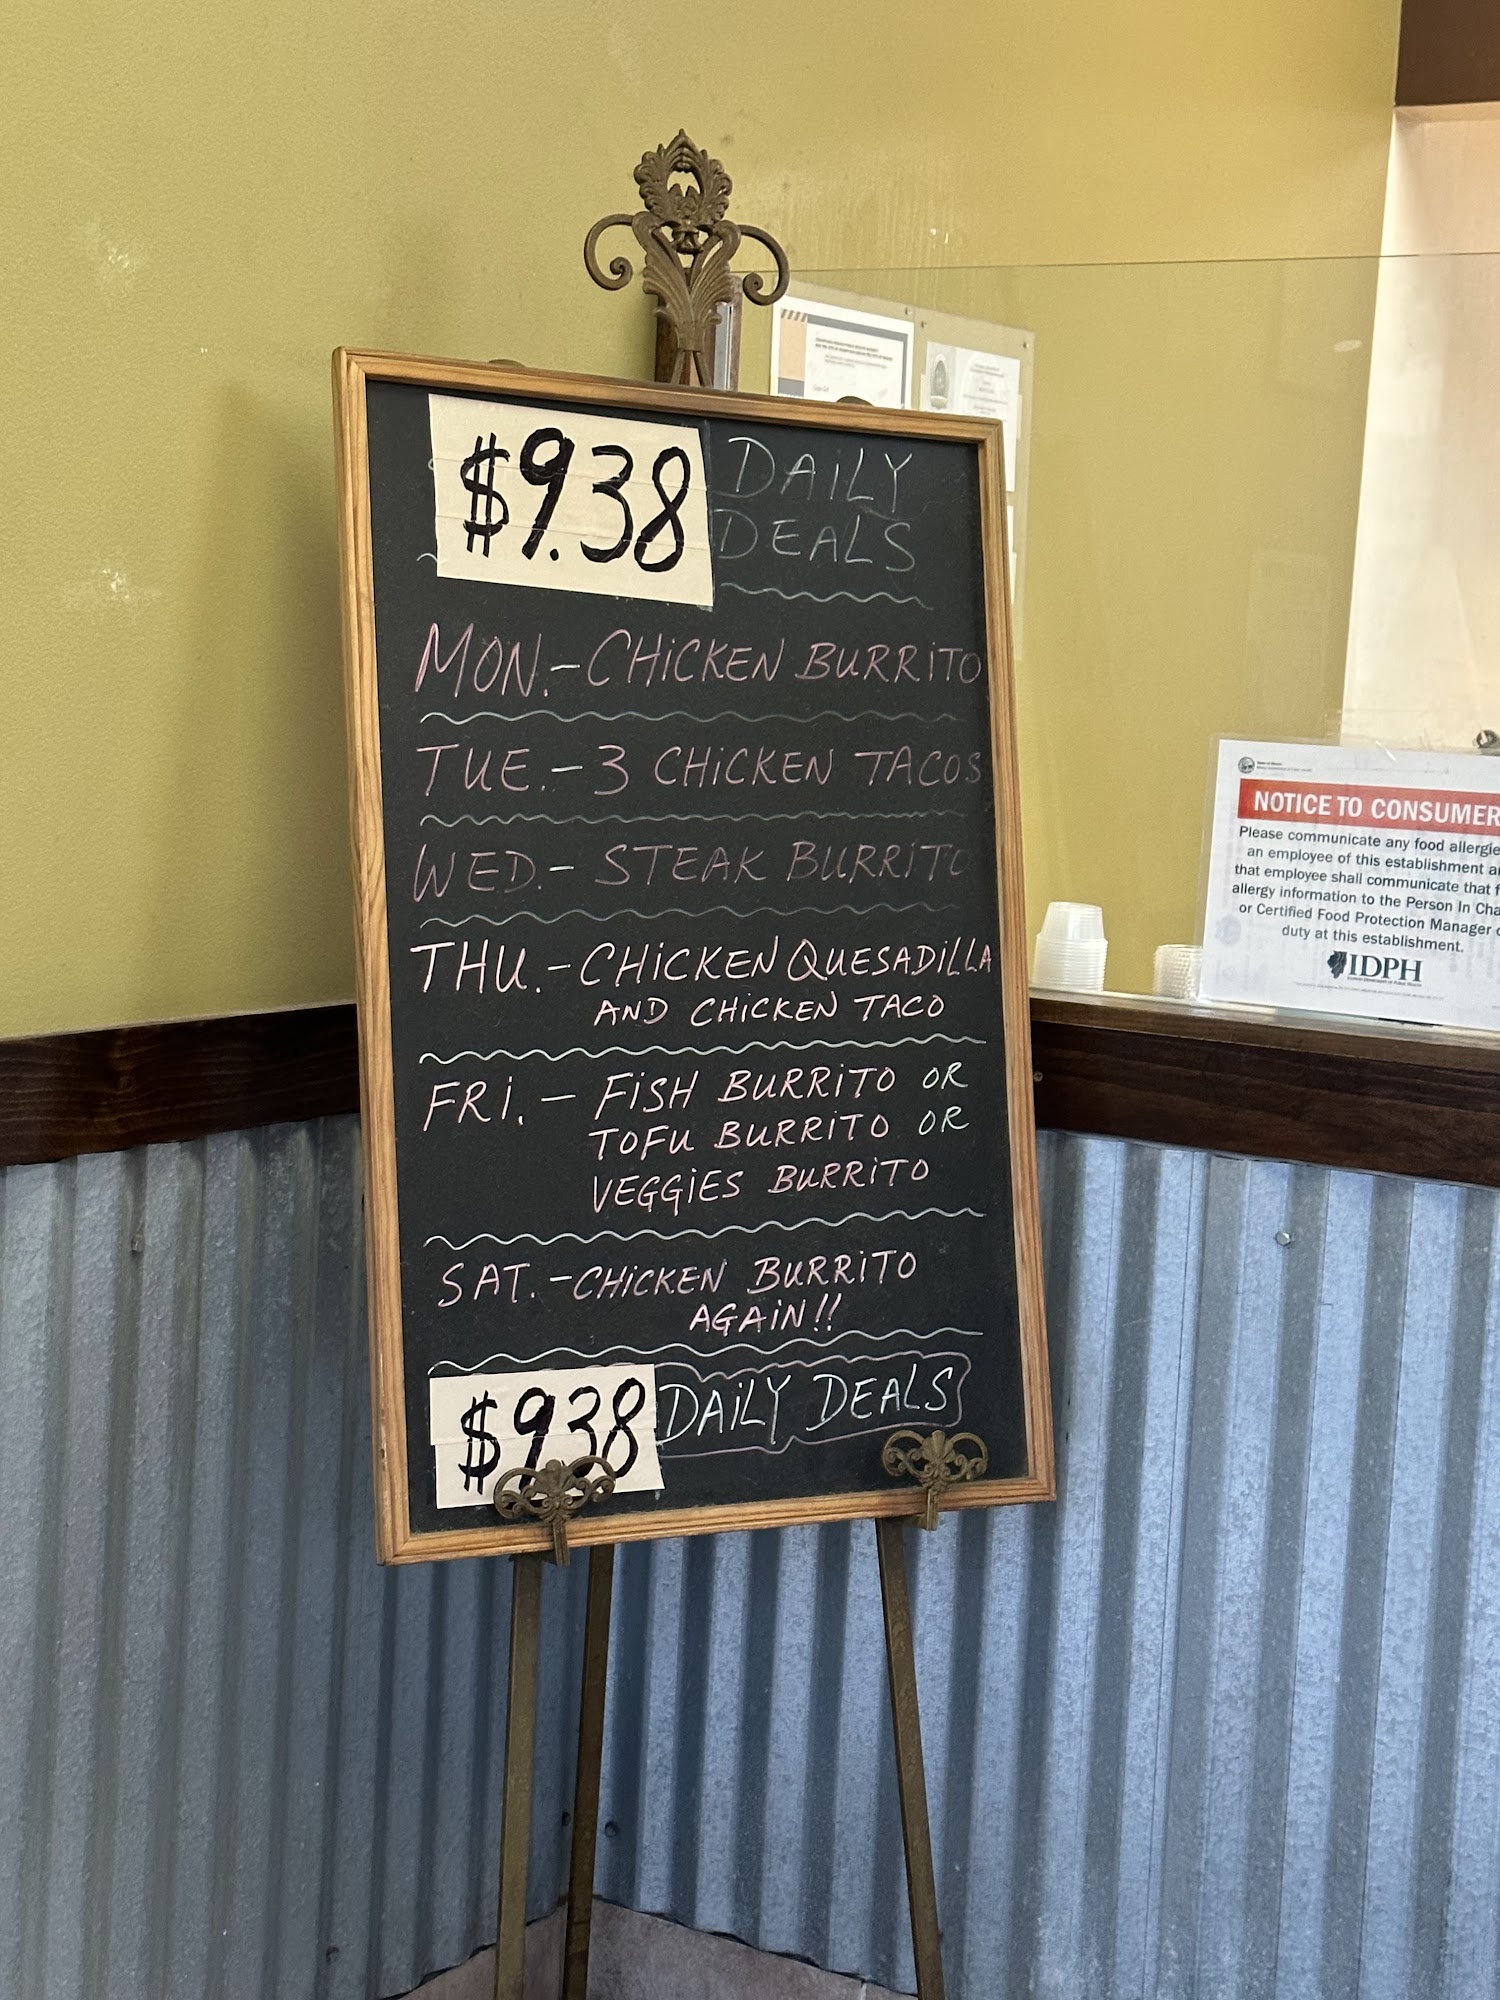 $9.38
DAiLY
DEALS
MON.-CHiCKEN BURRiTO
TUE.-3 CHiCKEN TACOS
WED.-STEAK BURRiTO
THU.-CHiCKEN QUESADiLLA
AND CHiCKEN TACO
FRi.-FiSH BURRiTO OR
TOFU BURRiTO OR
VEGGiES BURRiTO
SAT.-CHiCKEN BURRiTO
AGAiN!!
$9.38 DAiLY DEALS
NOTICE TO CONSUMER
Please communicate any food allergie
an employee of this establishment
that employee shall communicate that
allergy information to the Person In Cha
or Certified Food Protection Manager
duty at this establishment.
IDPH